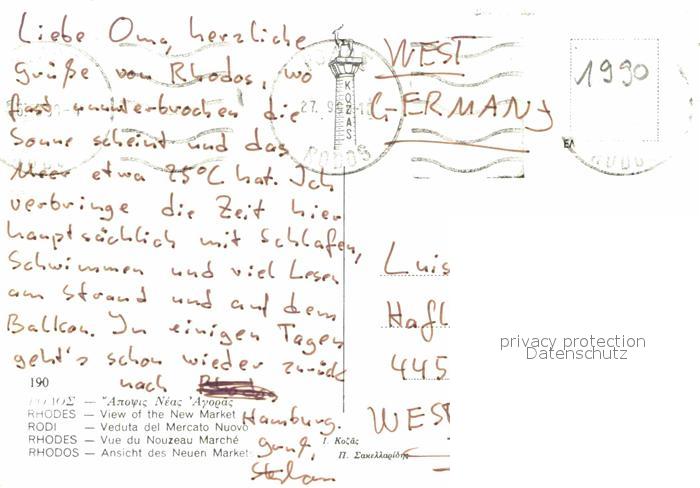 Liebe Oma, herzliche
Grüße von Rhodos, wo
fast ununterbrochen die
Sonne scheint und das
Meer etwa 25°C hat. Ich
verbringe die Zeit hier
hauptsächlich mit Schlafen,
Schwimmen und viel Lesen
am Strand und auf dem
Balkon. In einigen Tagen
geht's schon wieder zurück
nach
Hamburg.
Gruß,
Stephan
WEST
GERMANY
1990
KOZAS
RODOS
Luis
Hafl
445
WEST
privacy protection
Datenschutz
190
ΡΟΔΟΣ — Ἄποψις Νέας Ἀγορᾶς
RHODES — View of the New Market
RODI — Veduta del Mercato Nuovo
RHODES — Vue du Nouzeau Marché
RHODOS — Ansicht des Neuen Market
Ι. Κοζᾶς
Π. Σακελλαρίδης